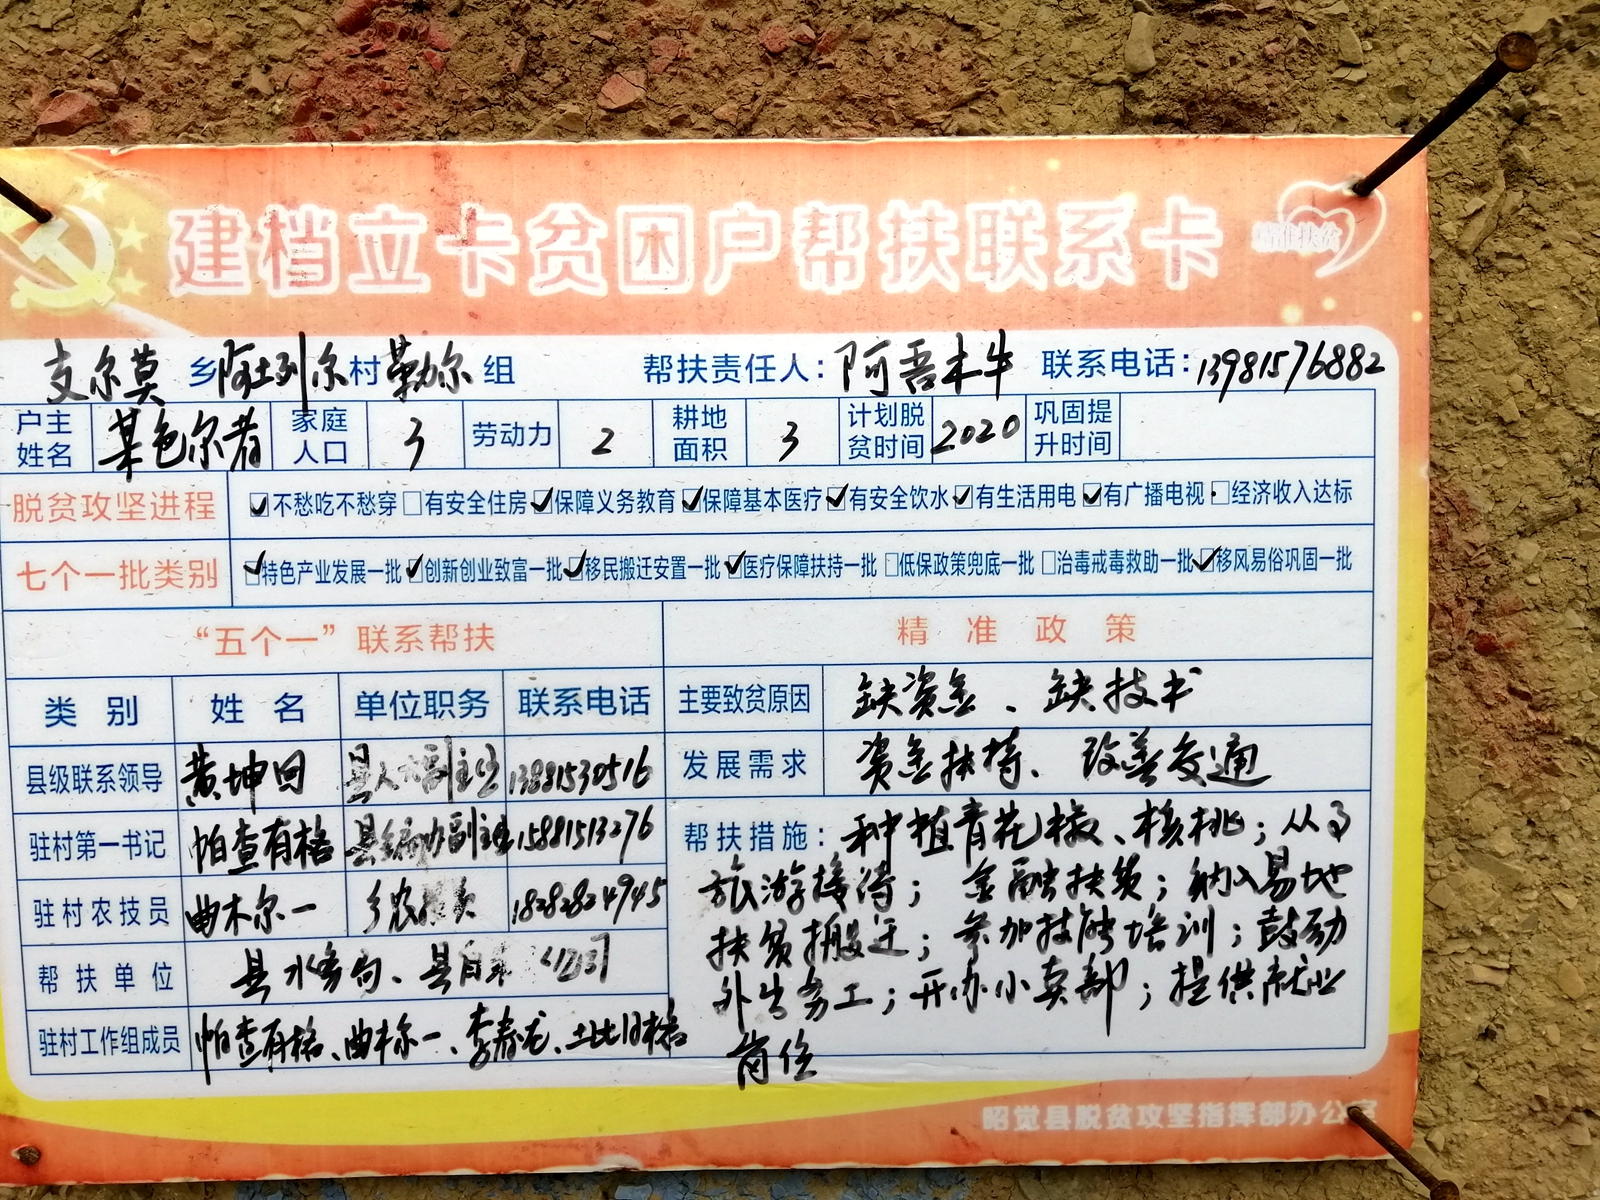 建档立卡贫困户帮扶联系卡
精准扶贫
支尔莫 乡 阿土列尔 村 勒尔 组 帮扶责任人：阿吾木牛 联系电话：13981576882
户主姓名 某色尔者 家庭人口 3 劳动力 2 耕地面积 3 计划脱贫时间 2020 巩固提升时间
脱贫攻坚进程 ☑不愁吃不愁穿 □有安全住房 ☑保障义务教育 ☑保障基本医疗 ☑有安全饮水 ☑有生活用电 ☑有广播电视 □经济收入达标
七个一批类别 ☑特色产业发展一批 ☑创新创业致富一批 ☑移民搬迁安置一批 ☑医疗保障扶持一批 □低保政策兜底一批 □治毒戒毒救助一批 ☑移风易俗巩固一批
“五个一”联系帮扶
类别 姓名 单位职务 联系电话
县级联系领导 黄坤回 县人大副主任 13881530516
驻村第一书记 帕查有格 县编办副主任 15881513276
驻村农技员 曲木尔一 乡农 18282824945
帮扶单位 县水务局、县自来 公司
驻村工作组成员 帕查有格、曲木尔一、李春龙、土比日格
精准政策
主要致贫原因 缺资金、缺技术
发展需求 资金扶持、改善交通
帮扶措施：种植青花椒、核桃；从事
旅游接待；金融扶贫；纳入易地
扶贫搬迁；参加技能培训；鼓动
外出务工；开办小卖部；提供就业
岗位
昭觉县脱贫攻坚指挥部办公室